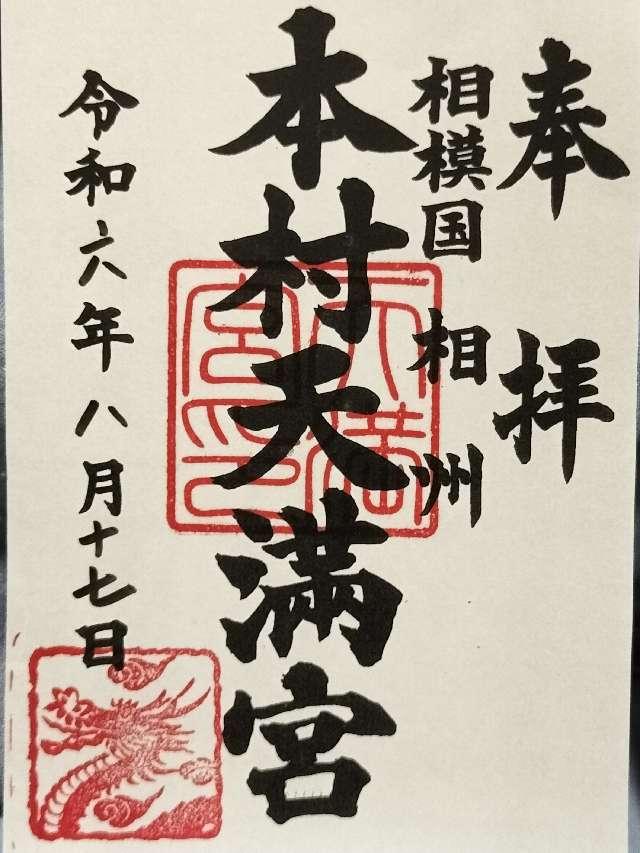 奉拝
相模国 相州
本村天満宮
令和六年八月十七日